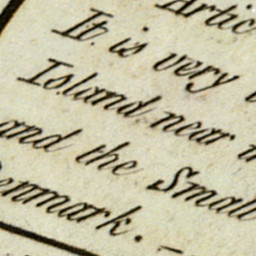 It is very
Island near
and the Small